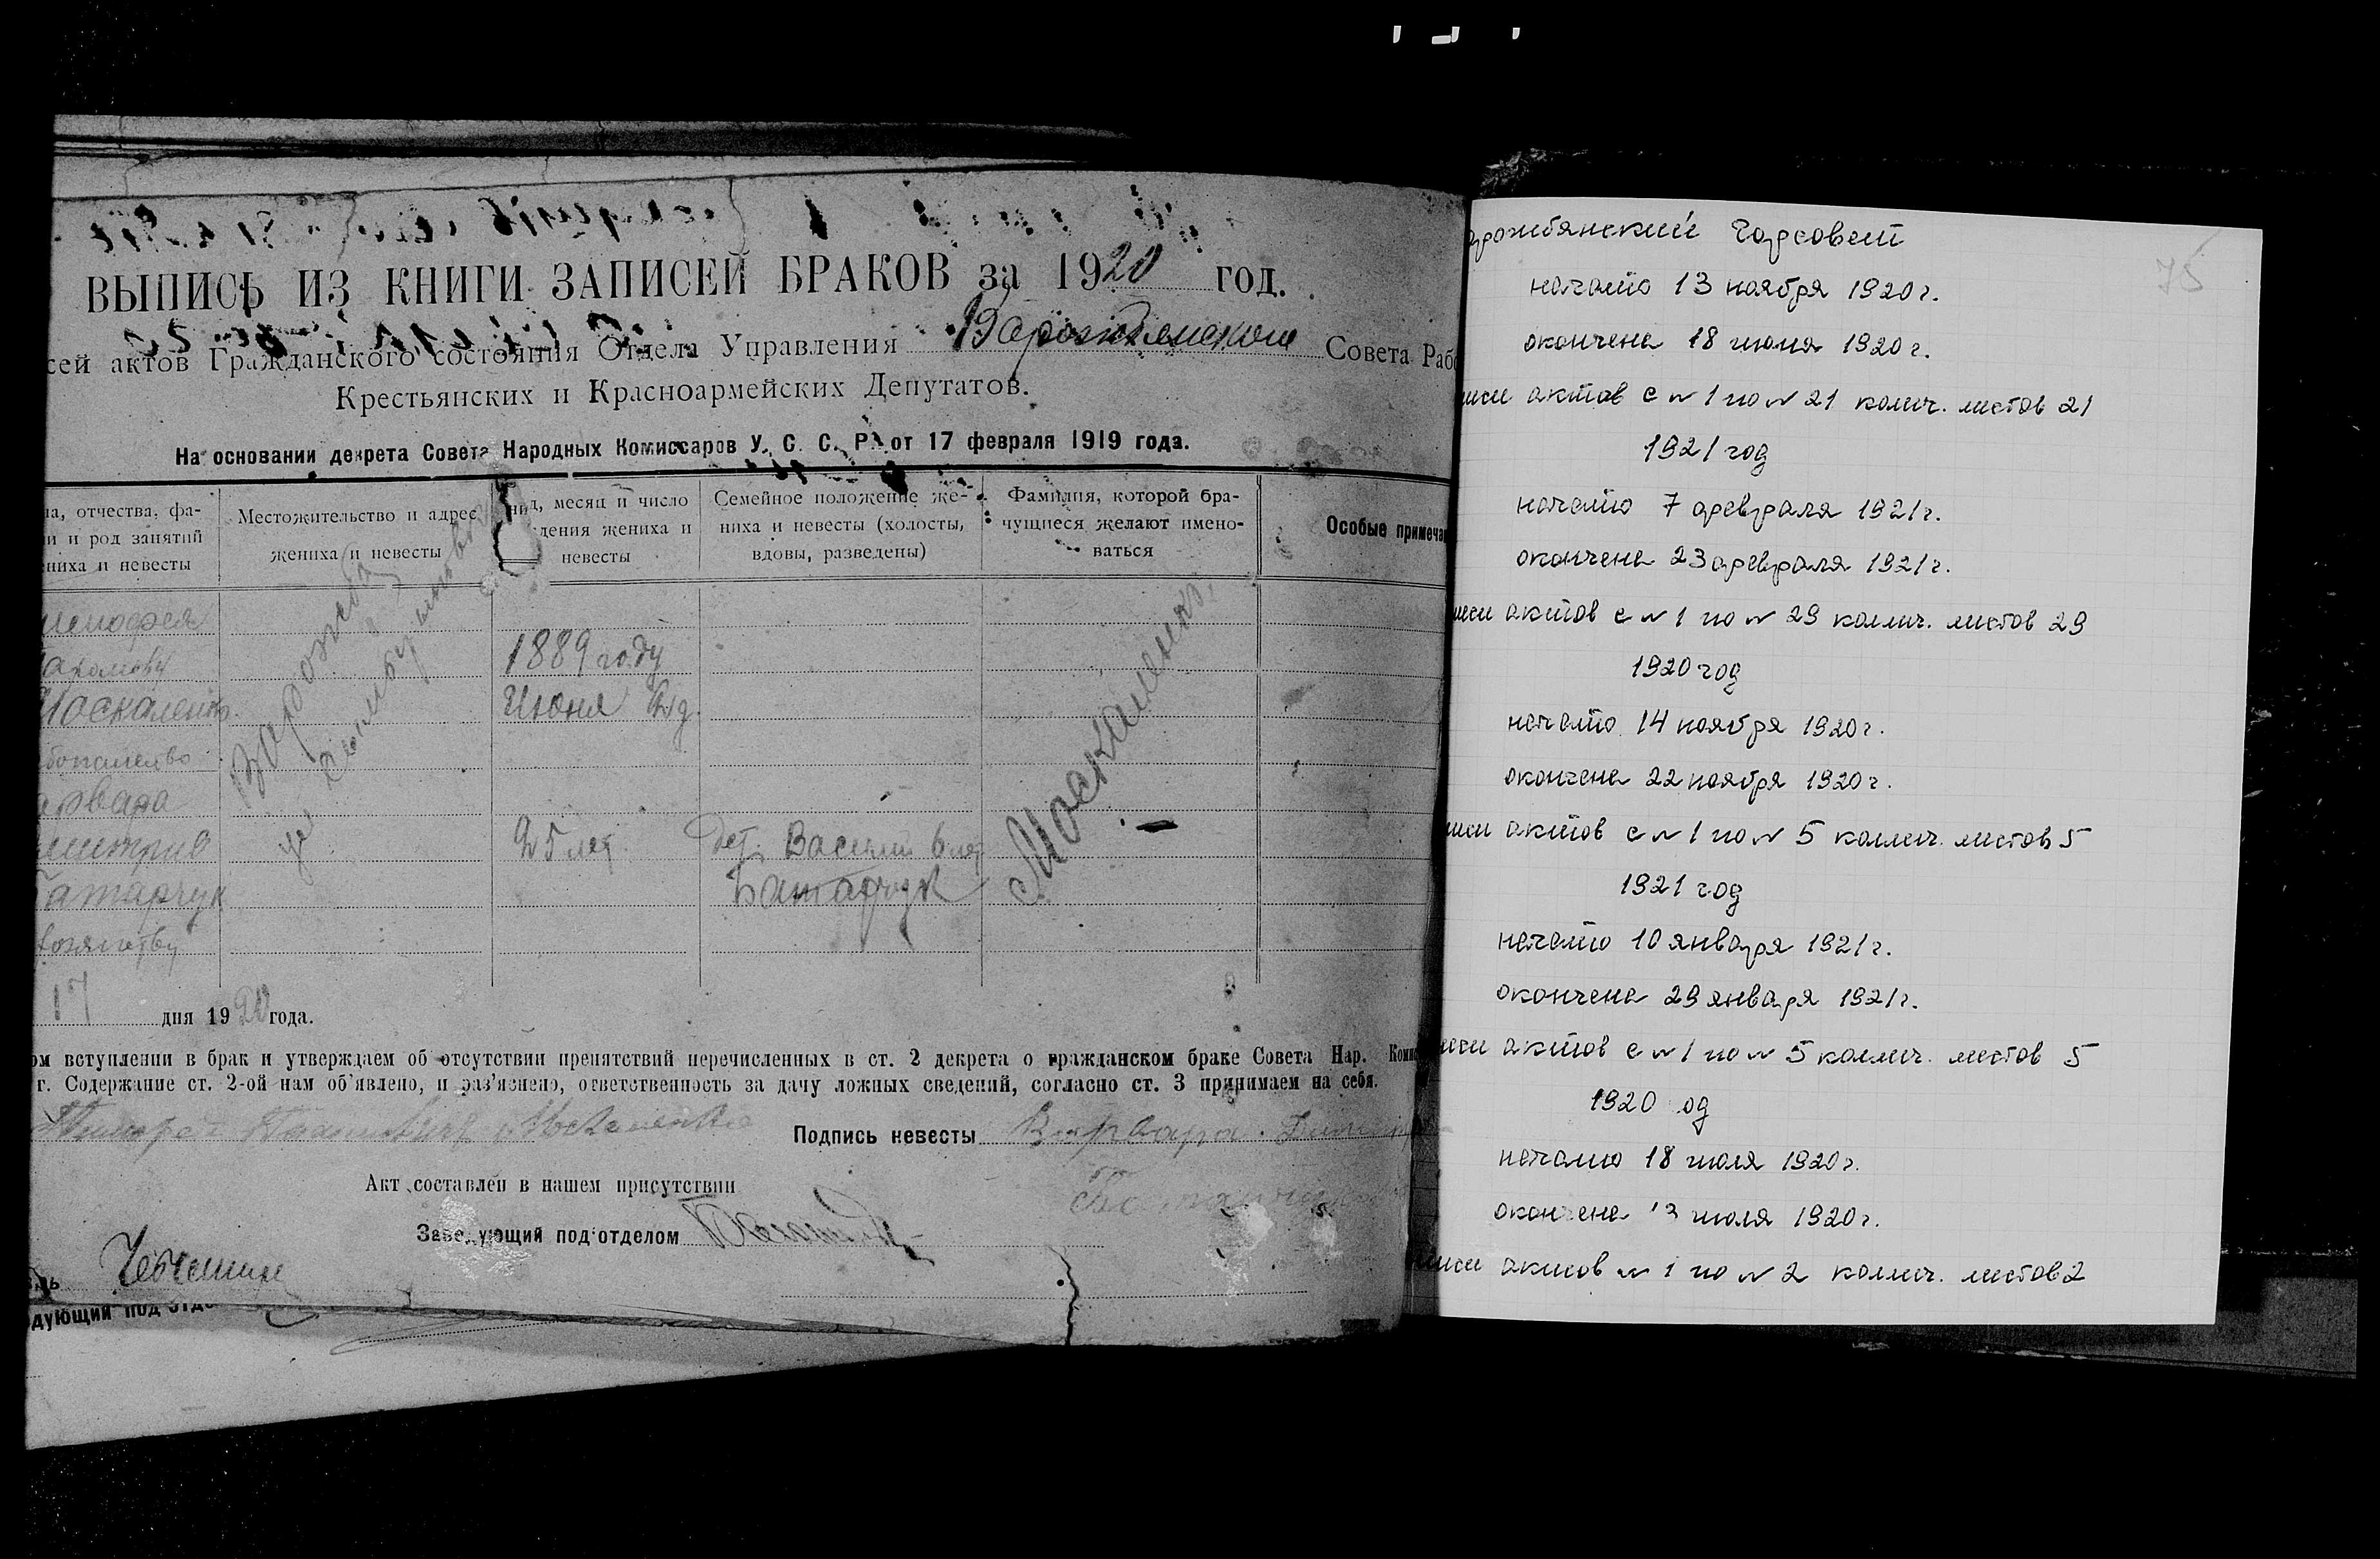 ВЫПИСЬ ИЗ КНИГИ ЗАПИСЕЙ БРАКОВ за 1920 год.
сей актов Гражданского состояния Отдела Управления Ворожбянского Совета Рабо
Крестьянских и Красноармейских Депутатов.
На основании декрета Совета Народных Комиссаров У. С. С. Р. от 17 февраля 1919 года.
на, отчества, фа-
и и род занятий
ниха и невесты
Местожительство и адрес
жениха и невесты
месяц и число
дения жениха и
невесты
Семейное положение же-
ниха и невесты (холосты,
вдовы, разведены)
Фамилия, которой бра-
чущиеся желают имено-
ваться
Особые примеча
имофея
Москаленко
1889 году
Июня
Ворожба
Москаленко
арвара
митрив
Батарчук
25 лет
дет. Василий 6 лет
Батарчук
17 дня 1920 года.
ом вступлении в брак и утверждаем об отсутствии препятствий перечисленных в ст. 2 декрета о гражданском браке Совета Нар. Комис
г. Содержание ст. 2-ой нам об'явлено, и раз'яснено, ответственность за дачу ложных сведений, согласно ст. 3 принимаем на себя.
Москаленко Подпись невесты Варвара
Акт составлен в нашем присутствии
Заведующий под'отделом
дующий под'отде
75
арожбянский Горсовет
начато 13 ноября 1920 г.
окончена 18 июля 1920 г.
иси актов с № 1 по № 21 колич. листов 21
1921 год
начато 7 февраля 1921 г.
окончена 23 февраля 1921 г.
иси актов с № 1 по № 29 колич. листов 29
1920 год
начато 14 ноября 1920 г.
окончена 22 ноября 1920 г.
иси актов с № 1 по № 5 колич. листов 5
1921 год
начато 10 января 1921 г.
окончена 29 января 1921 г.
иси актов с № 1 по № 5 колич. листов 5
1920 од
начато 18 июля 1920 г.
окончена июля 1920 г.
иси актов № 1 по № 2 колич. листов 2